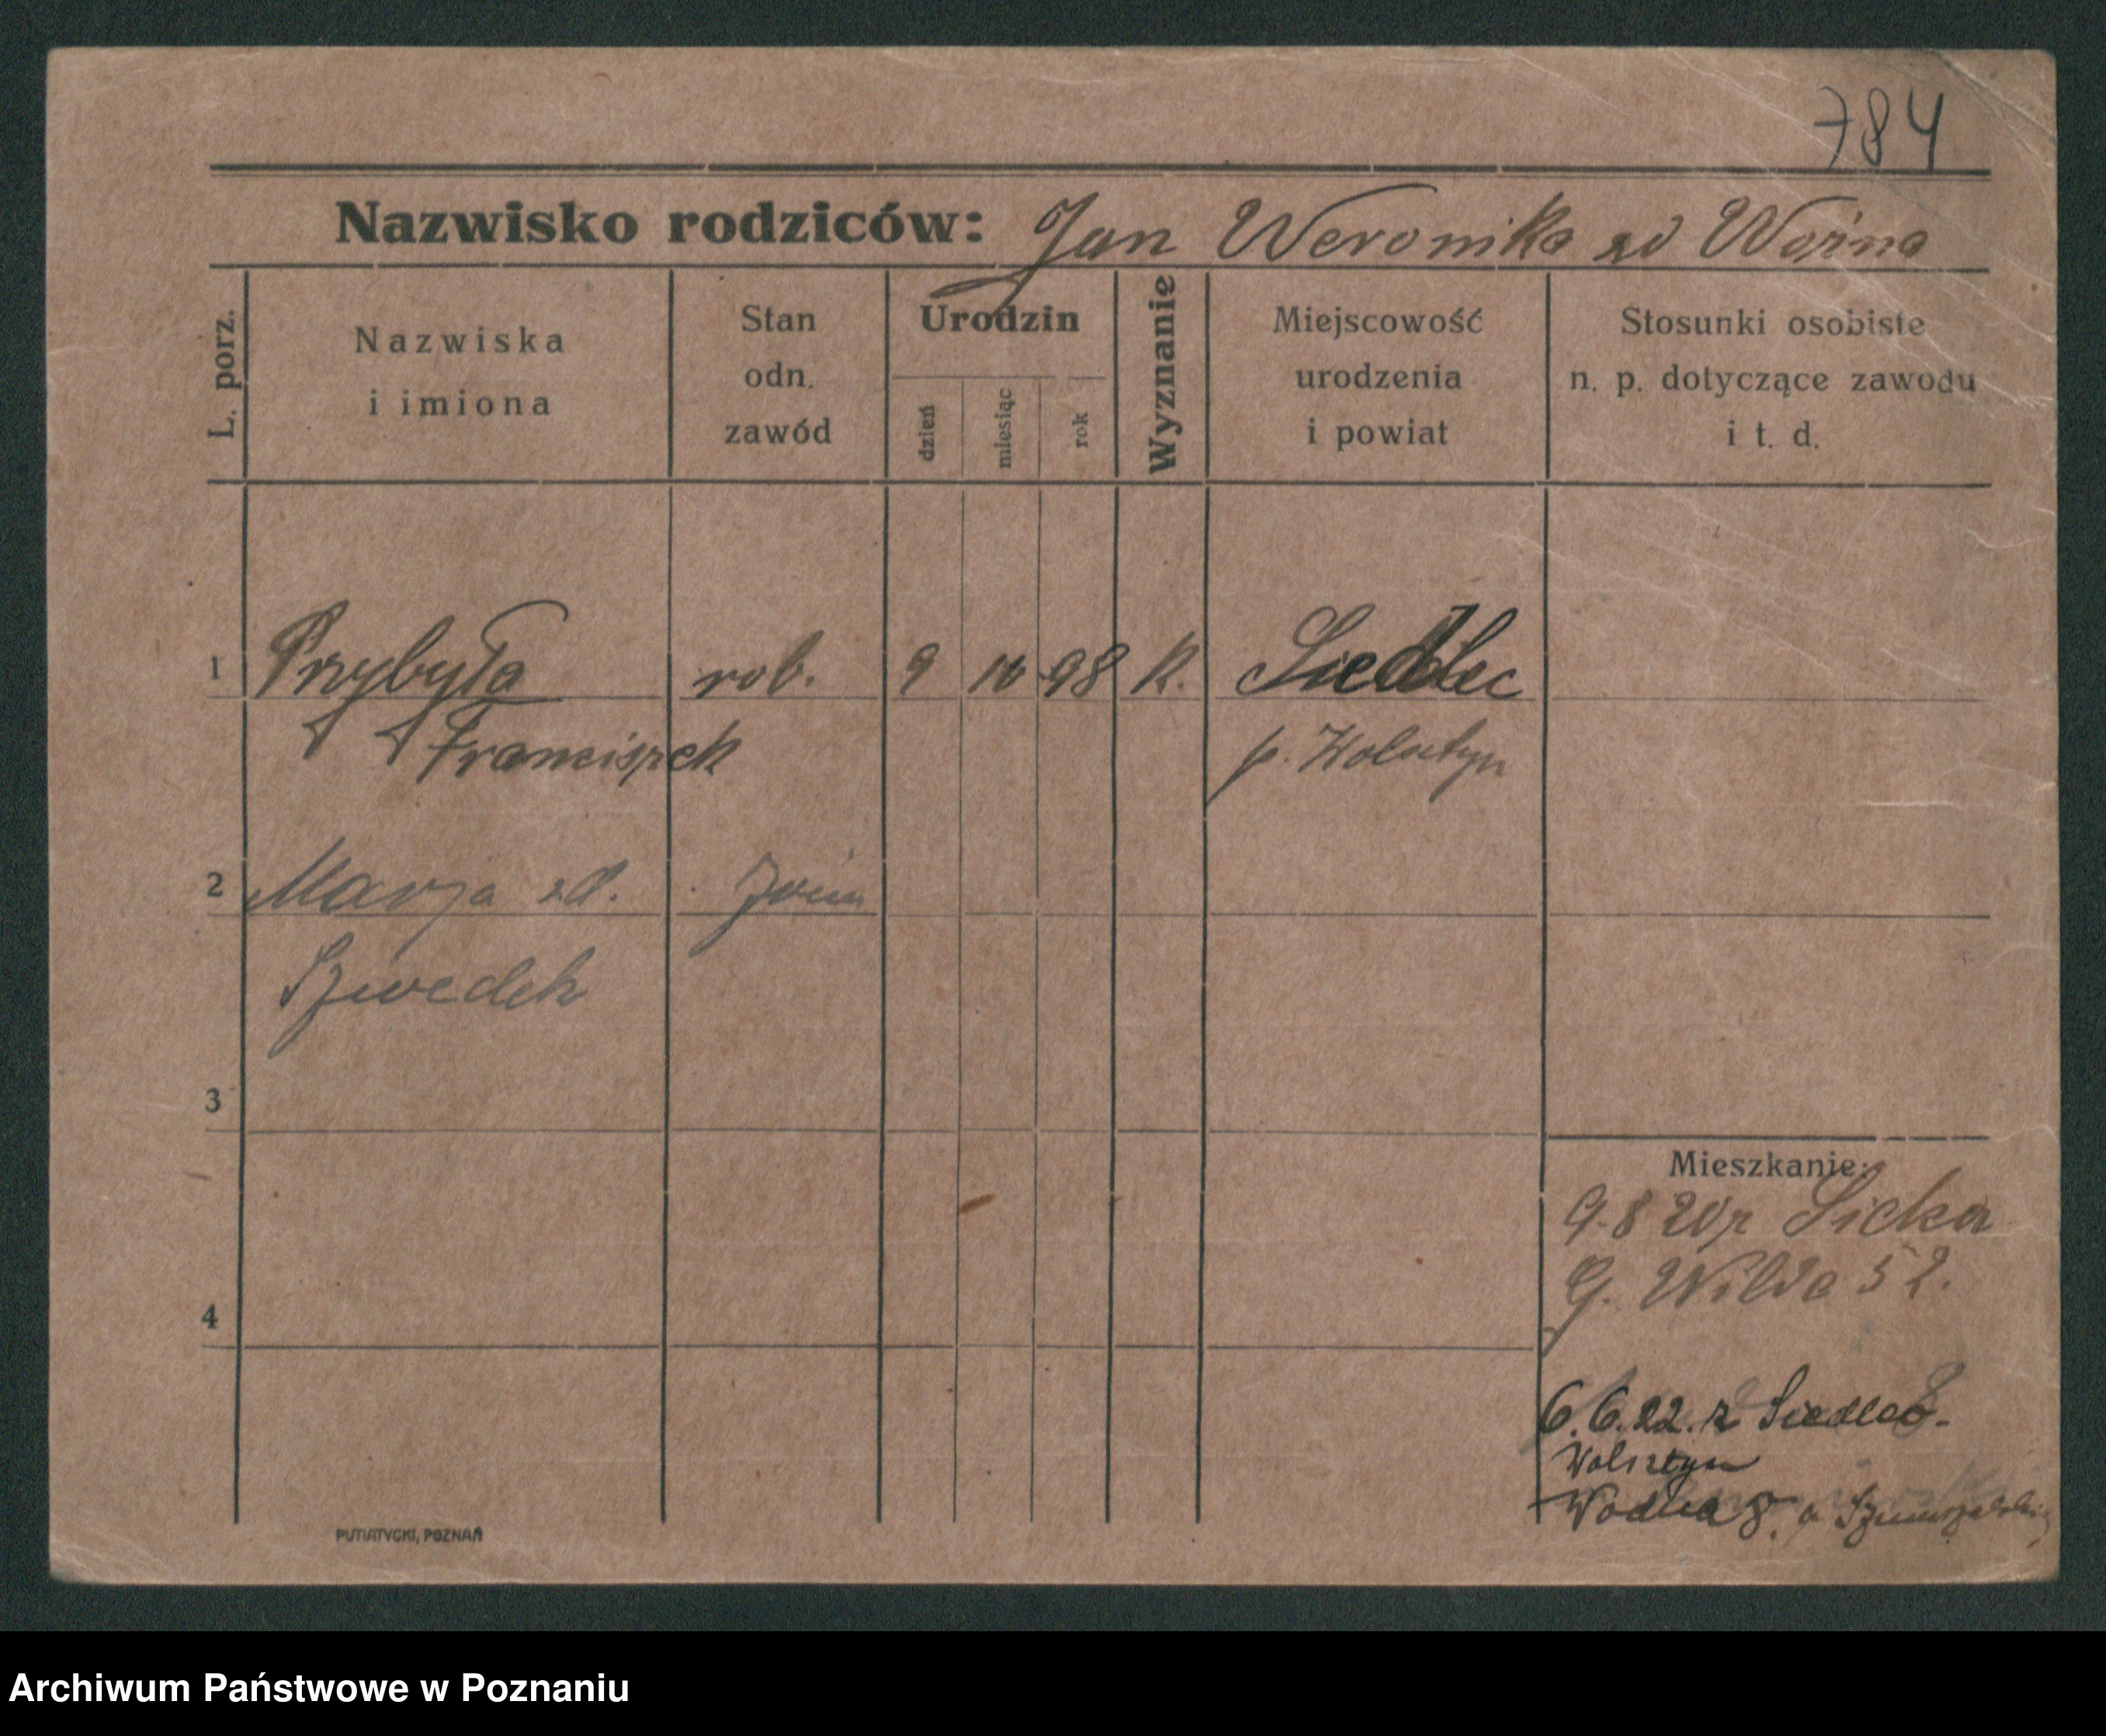 784
Nazwisko rodziców: Jan Weronika zd Woźna
L. porz.
Nazwiska
i imiona
Stan
odn.
zawód
Urodzin
dzień
miesiąc
rok
Wyznanie
Miejscowość
urodzenia
i powiat
Stosunki osobiste
n. p. dotyczące zawodu
i t. d.
1 Przybyła rob. 9 10 98 k. Siedlec
Franciszek p. Wolsztyn
2 Marja zd.
Szwedek
3
Mieszkanie:
9.8 20 z
G. Wilda 52.
4
6.6.22. z Siedlec
Wolsztyn
Wodna 8.
PUTIATYCKI, POZNAŃ
Archiwum Państwowe w Poznaniu